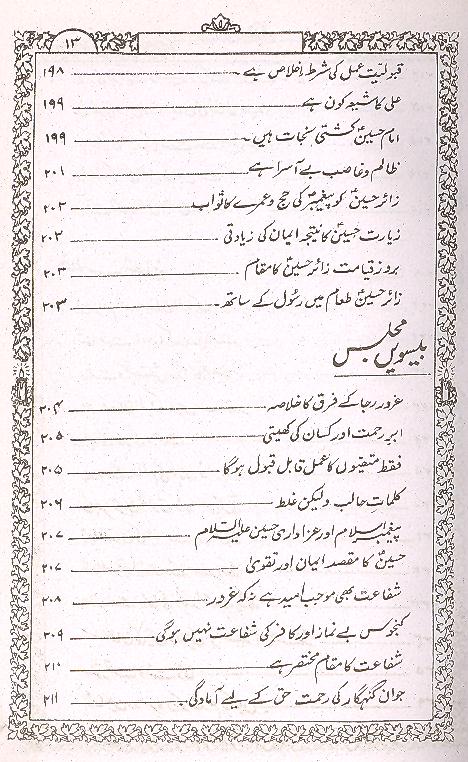 ۱۳
قبولیّت عمل کی شرط اخلاص ہے ۱۹۸
علی کا شیعہ کون ہے ۱۹۹
امام حسینؑ کشتی نجات ہیں ۱۹۹
ظالم و غاصب بے آسرا ہے ۲۰۱
زائر حسینؑ کو پیغمبرؐ کی حج و عمرے کا ثواب ۲۰۲
زیارت حسینؑ کا نتیجہ ایمان کی زیادتی ۲۰۲
بروز قیامت زائر حسینؑ کا مقام ۲۰۳
زائر حسینؑ طعام میں رسُولؐ کے ساتھ ۲۰۳
بیسویں مجلس
غرور رجا کے فرق کا خلاصہ ۲۰۴
ابر رحمت اور کسان کی کھیتی ۲۰۵
فقط متقیوں کا عمل قابل قبول ہوگا ۲۰۵
کلمات جالب ولیکن غلط ۲۰۶
پیغمبر اسلام اور عزاداری حسین علیہ السّلام ۲۰۷
حسینؑ کا مقصد ایمان اور تقویٰ ۲۰۷
شفاعت بھی موجب امید ہے نہ کہ غرور ۲۰۸
کنجوس بے نماز اور کافر کی شفاعت نہیں ہوگی ۲۰۹
شفاعت کا مقام مختصر ہے ۲۱۰
جوان گنہگار کی رحمت حق کے لیے آمادگی ۲۱۱